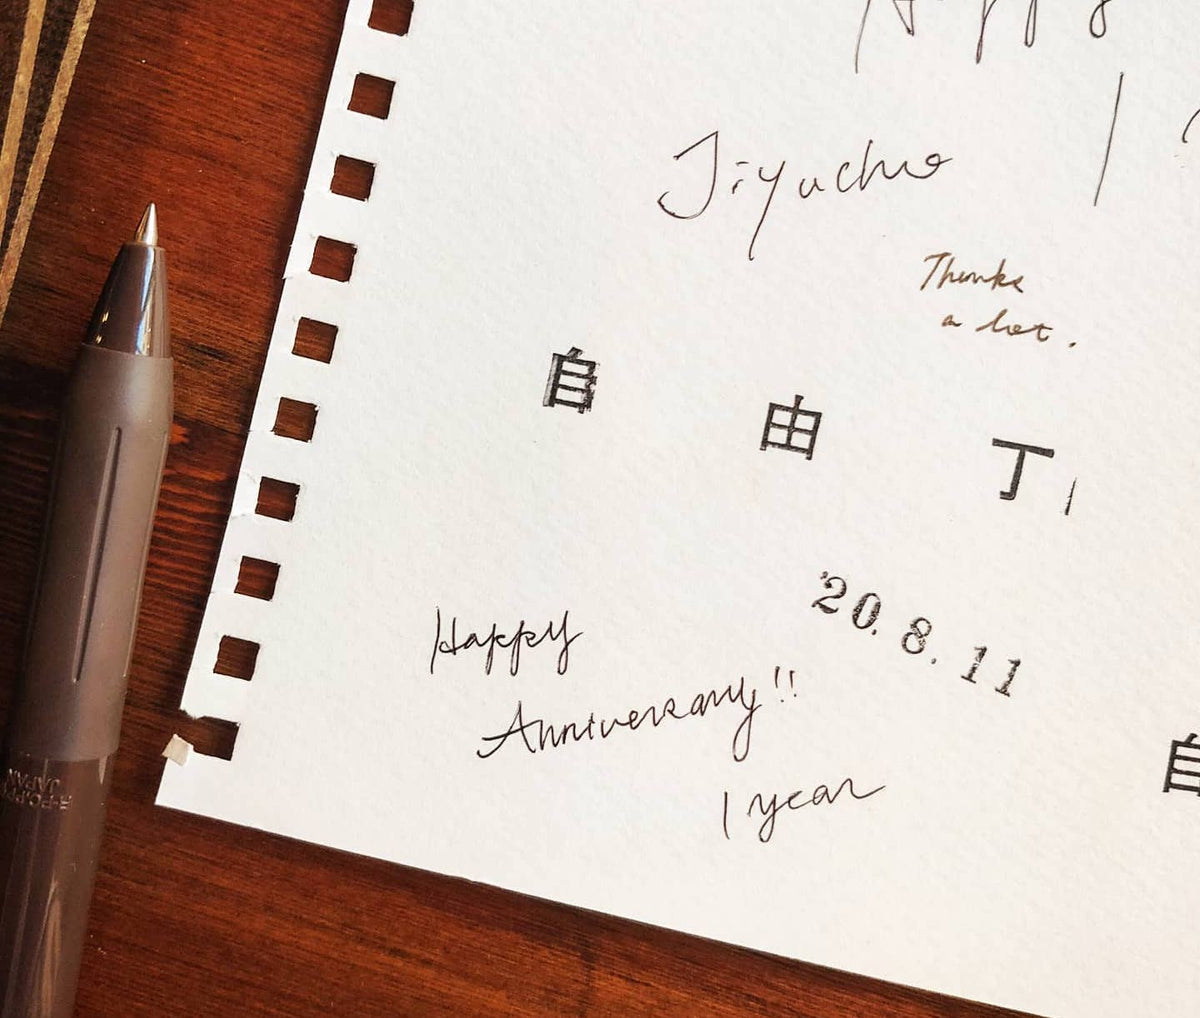 Happy
Jiyucho
Thanks
a lot.
自由丁
'20.8.11
Happy
Anniversary!!
1 year
自
JAPAN